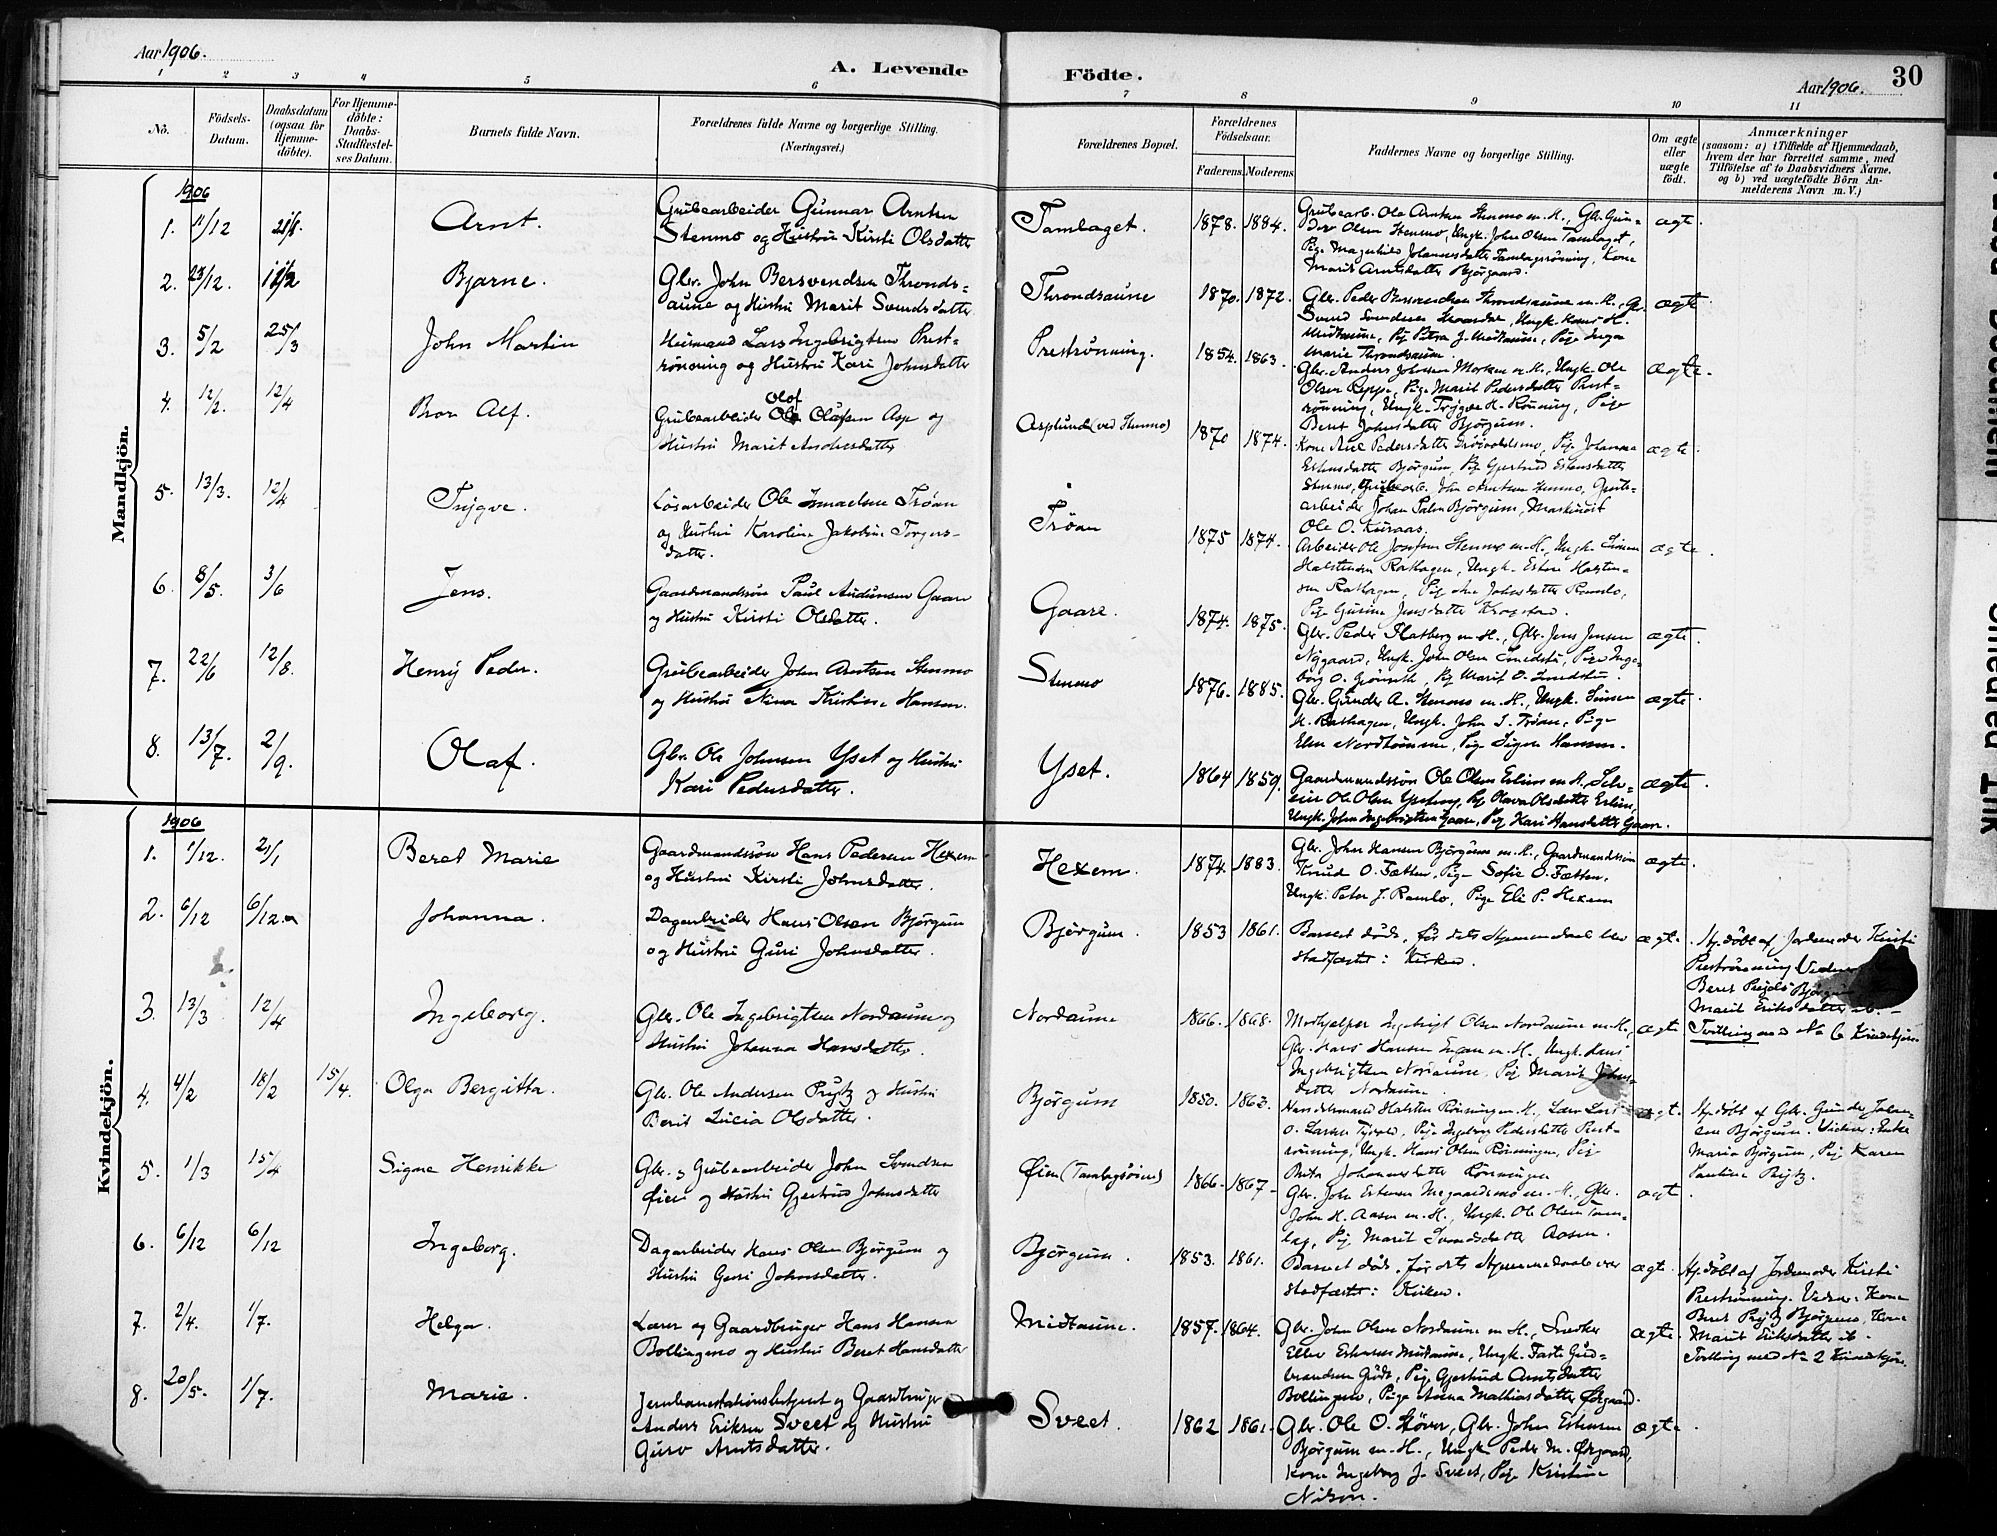 Aar 1906.
A. Levende Födte.
Aar 1906.
30
1 2 3 4 5 6 7 8 9 10 11
No.
Födsels-Datum.
Daabsdatum (ogsaa for Hjemme-döbte).
For Hjemme-döbte: Daabs-Stadfæstel-ses Datum.
Barnets fulde Navn.
Forældrenes fulde Navne og borgerlige Stilling. (Næringsvei.)
Forældrenes Bopæl.
Forældrenes Födselsaar.
Faderens. Moderens.
Faddernes Navne og borgerlige Stilling.
Om ægte eller uægte födt.
Anmærkninger
(saasom: a) i Tilfælde af Hjemmedaab,
hvem der har forrettet samme, med
Tilföielse af to Daabsvidners Navne,
og b) ved uægtefödte Börn An-
melderens Navn m. V.)
Mandkjön.
1906
1. 11/12 21/1. Arnt.
Grubearbeider Gunnar Arntsen
Stenmo og Hustru Kirsti Olsdatter
Tamlaget. 1878. 1884.
Grubearb. Ole Arntsen Stenmo m. H., Gbr. Gun-
der Olsen Stenmo, Ungk. John Olsen Tamlaget,
Pige Magnhild Johannesdatter Tamlagsrønning, Kone
Marit Arntsdatter Bjørgaard.
ægte.
2. 23/12. Bjarne.
Gbr. John Bersvendsen Thronds-
aune og Hustru Marit Svendsdatter
Throndsaune 1870. 1872.
Gbr. Peder Bersvendsen Throndsaune m. H., Gbr.
Svend Svendsen, Ungk. Hans H.
Midtaune, Pige Petra J. Midtaune, Pige Inga
Marie Throndsaune.
ægte
3. 5/2 25/3 John Martin
Husmand Lars Ingebrigtsen Prest-
rönning og Hustru Kari Johnsdatter
Prestrønning. 1854. 1863.
Gbr. Anders Johnsen Morken m. H., Ungk. Ole
Olsen Reppe, Pige Marit Pedersdatter Prest-
rönning, Ungk. Trygve H. Rönning, Pige
Beret Johnsdatter Bjørgum.
ægte.
4. 12/2. 12/4 Bror Alf.
Olof
Grubearbeider Ole Olofsen Asp og
Hustru Marit Andersdatter
Asplund (ved Stenmo) 1870 1874.
Kone Ane Pedersdatter, Pige Johanna
Estensdatter Bjørgum, Pige Gjertrud Estensdatter
Stenmo, Grubearb. John Arntsen Stenmo, Grube-
arbeider Johan Palm Bjørgum, Maskinist
Ole O. Kuraas.
ægte.
5. 13/3. 12/4 Trygve.
Løsarbeider Ole Ismaelsen Trøan
og Hustru Karoline Jakobine Torgers-
datter.
Trøan 1875 1874.
Arbeider Ole Josefsen Stenmo m. H., Ungk. Simen
Halstensen Rathagen, Ungk. Esten Halsten-
sen Rathagen, Pige Johnsdatter Ramlo,
Pige Gurine Jensdatter.
ægte.
6. 8/5. 3/6 Jens.
Gaardmandssøn Paul Audunsen Gaare
og Hustru Kirsti Olsdatter.
Gaare. 1874. 1875.
Gbr. Peder Flatberg m. H., Gbr. Jens Jensen
Nygaard, Ungk. John Olsen Smedstu, Pige Inge-
borg O., Pige Marit O. Smedstu.
ægte.
7. 22/6 12/8. Henry Peder.
Grubearbeider John Arntsen Stenmo
og Hustru Nina Kristine Hansen.
Stenmo 1876. 1885.
Gbr. Gunder A. Stenmo m. H., Ungk. Simen
H. Rathagen, Ungk. John I. Trøan, Pige
Elen Nordtømme, Pige Signe Hansen.
ægte.
8. 13/7. 2/9. Olaf.
Gbr. Ole Johnsen Yset og Hustru
Kari Pedersdatter.
Yset. 1864 1859.
Gaardmandssøn Ole Olsen m. H., Selv-
eier Ole Olsen, Pige Olava Olsdatter,
Ungk. John Ingebrigtsen Gaare, Pige Kari Hansdatter Gaare.
ægte.
Kvindekjön.
1906
1. 1/12. 21/1 Beret Marie
Gaardmandssøn Hans Pedersen Hexem
og Hustru Kirsti Johnsdatter.
Hexem. 1874. 1883.
Gbr. John Hansen Bjørgum m. H., Gaardmandssøn
Knud O. Fætten, Pige Sofie O. Fætten,
Ungk. Peter J. Ramlo, Pige Eli P. Hexem
ægte.
2. 6/12 6/12 Johanna.
Dagarbeider Hans Olsen Bjørgum
og Hustru Guri Johnsdatter.
Bjørgum. 1853 1861.
Barnet døde, før dets Hjemmedaab blev
stadfæstet i Kirken.
ægte.
Hj. døbt af Jordemoder Kirsti
Prestrønning. Vidner
Beret Prytz Bjørgum
Marit Eriksdatter ib. –
Tvilling med No 6 Kvindekjøn
3. 13/3 12/4 Ingeborg.
Gbr. Ole Ingebrigtsen Nordaune og
Hustru Johanna Hansdatter
Nordaune 1866. 1868.
Medhjelper Ingebrigt Olsen Nordaune m. H.,
Gbr. Hans Hansen Engan m. H., Ungk. Hans
Ingebrigtsen Nordaune, Pige Marit Johns-
datter Nordaune
ægte
4. 4/2 18/2 15/4. Olga Bergitta.
Gbr. Ole Andersen Prytz og Hustru
Berit Lucia Olsdatter.
Bjørgum 1850. 1863.
Handelsmand Halsten Rønningen m. H., Lærer Lars
O. Larsen, Pige Ingeborg Pedersdatter Prest-
rønning, Ungk. Hans Olsen Rønningen, Pige
Johannesdatter Rønningen
ægt.
Hj. døbt af Gbr. Gunder John-
sen Bjørgum. Vidner: Enke
Maria Bjørgum, Pige Karen
Pauline Prytz.
5. 1/3 15/4 Signe Henrikke
Gbr. og Grubearbeider John Svendsen
Øien og Hustru Gjertrud Johnsdatter
Øien (Tamlagsøien) 1866. 1867.
Gbr. John Estensen m. H., Gbr.
John H. Aasen m. H., Ungk. Ole Olsen Tam-
lag, Pige Marit Svendsdatter Aasen.
ægte.
6. 6/12 6/12 Ingeborg.
Dagarbeider Hans Olsen Bjørgum og
Hustru Guri Johnsdatter.
Bjørgum. 1853. 1861.
Barnet døde, før dets Hjemmedaab var
stadfæstet i Kirken.
ægte.
Hj. døbt af Jordemoder Kirsti
Prestrønning. Vidner: Kone
Beret Prytz Bjørgum, Kone
Marit Eriksdatter ib. –
Tvilling med No 2 Kvindekjøn.
7. 2/4. 1/7. Helga.
Lærer og Gaardbruger Hans Hansen
Bollingmo og Hustru Beret Hansdatter
Midtaune. 1857. 1864.
Gbr. John Olsen Nordaune m. H., Snedker
Ellev Estensen Midtaune, Ungk. Tarti Gud-
brandsen, Pige Gjertrud Arntsdatter
Bollingmo, Pige Anna Mathiasdatter Ørgaard.
ægte.
8. 20/5. 1/7. Marie.
Jernbanestationsbetjent og Gaardbruger
Anders Eriksen Sveet og Hustru
Guro Arntsdatter.
Sveet. 1862 1861.
Gbr. Ole O. Støver, Gbr. John Estensen
Bjørgum m. H., Ungk. Peder M. Ørgaard,
Kone Ingeborg J. Sveet, Pige Kristine
Nilsen.
ægte.